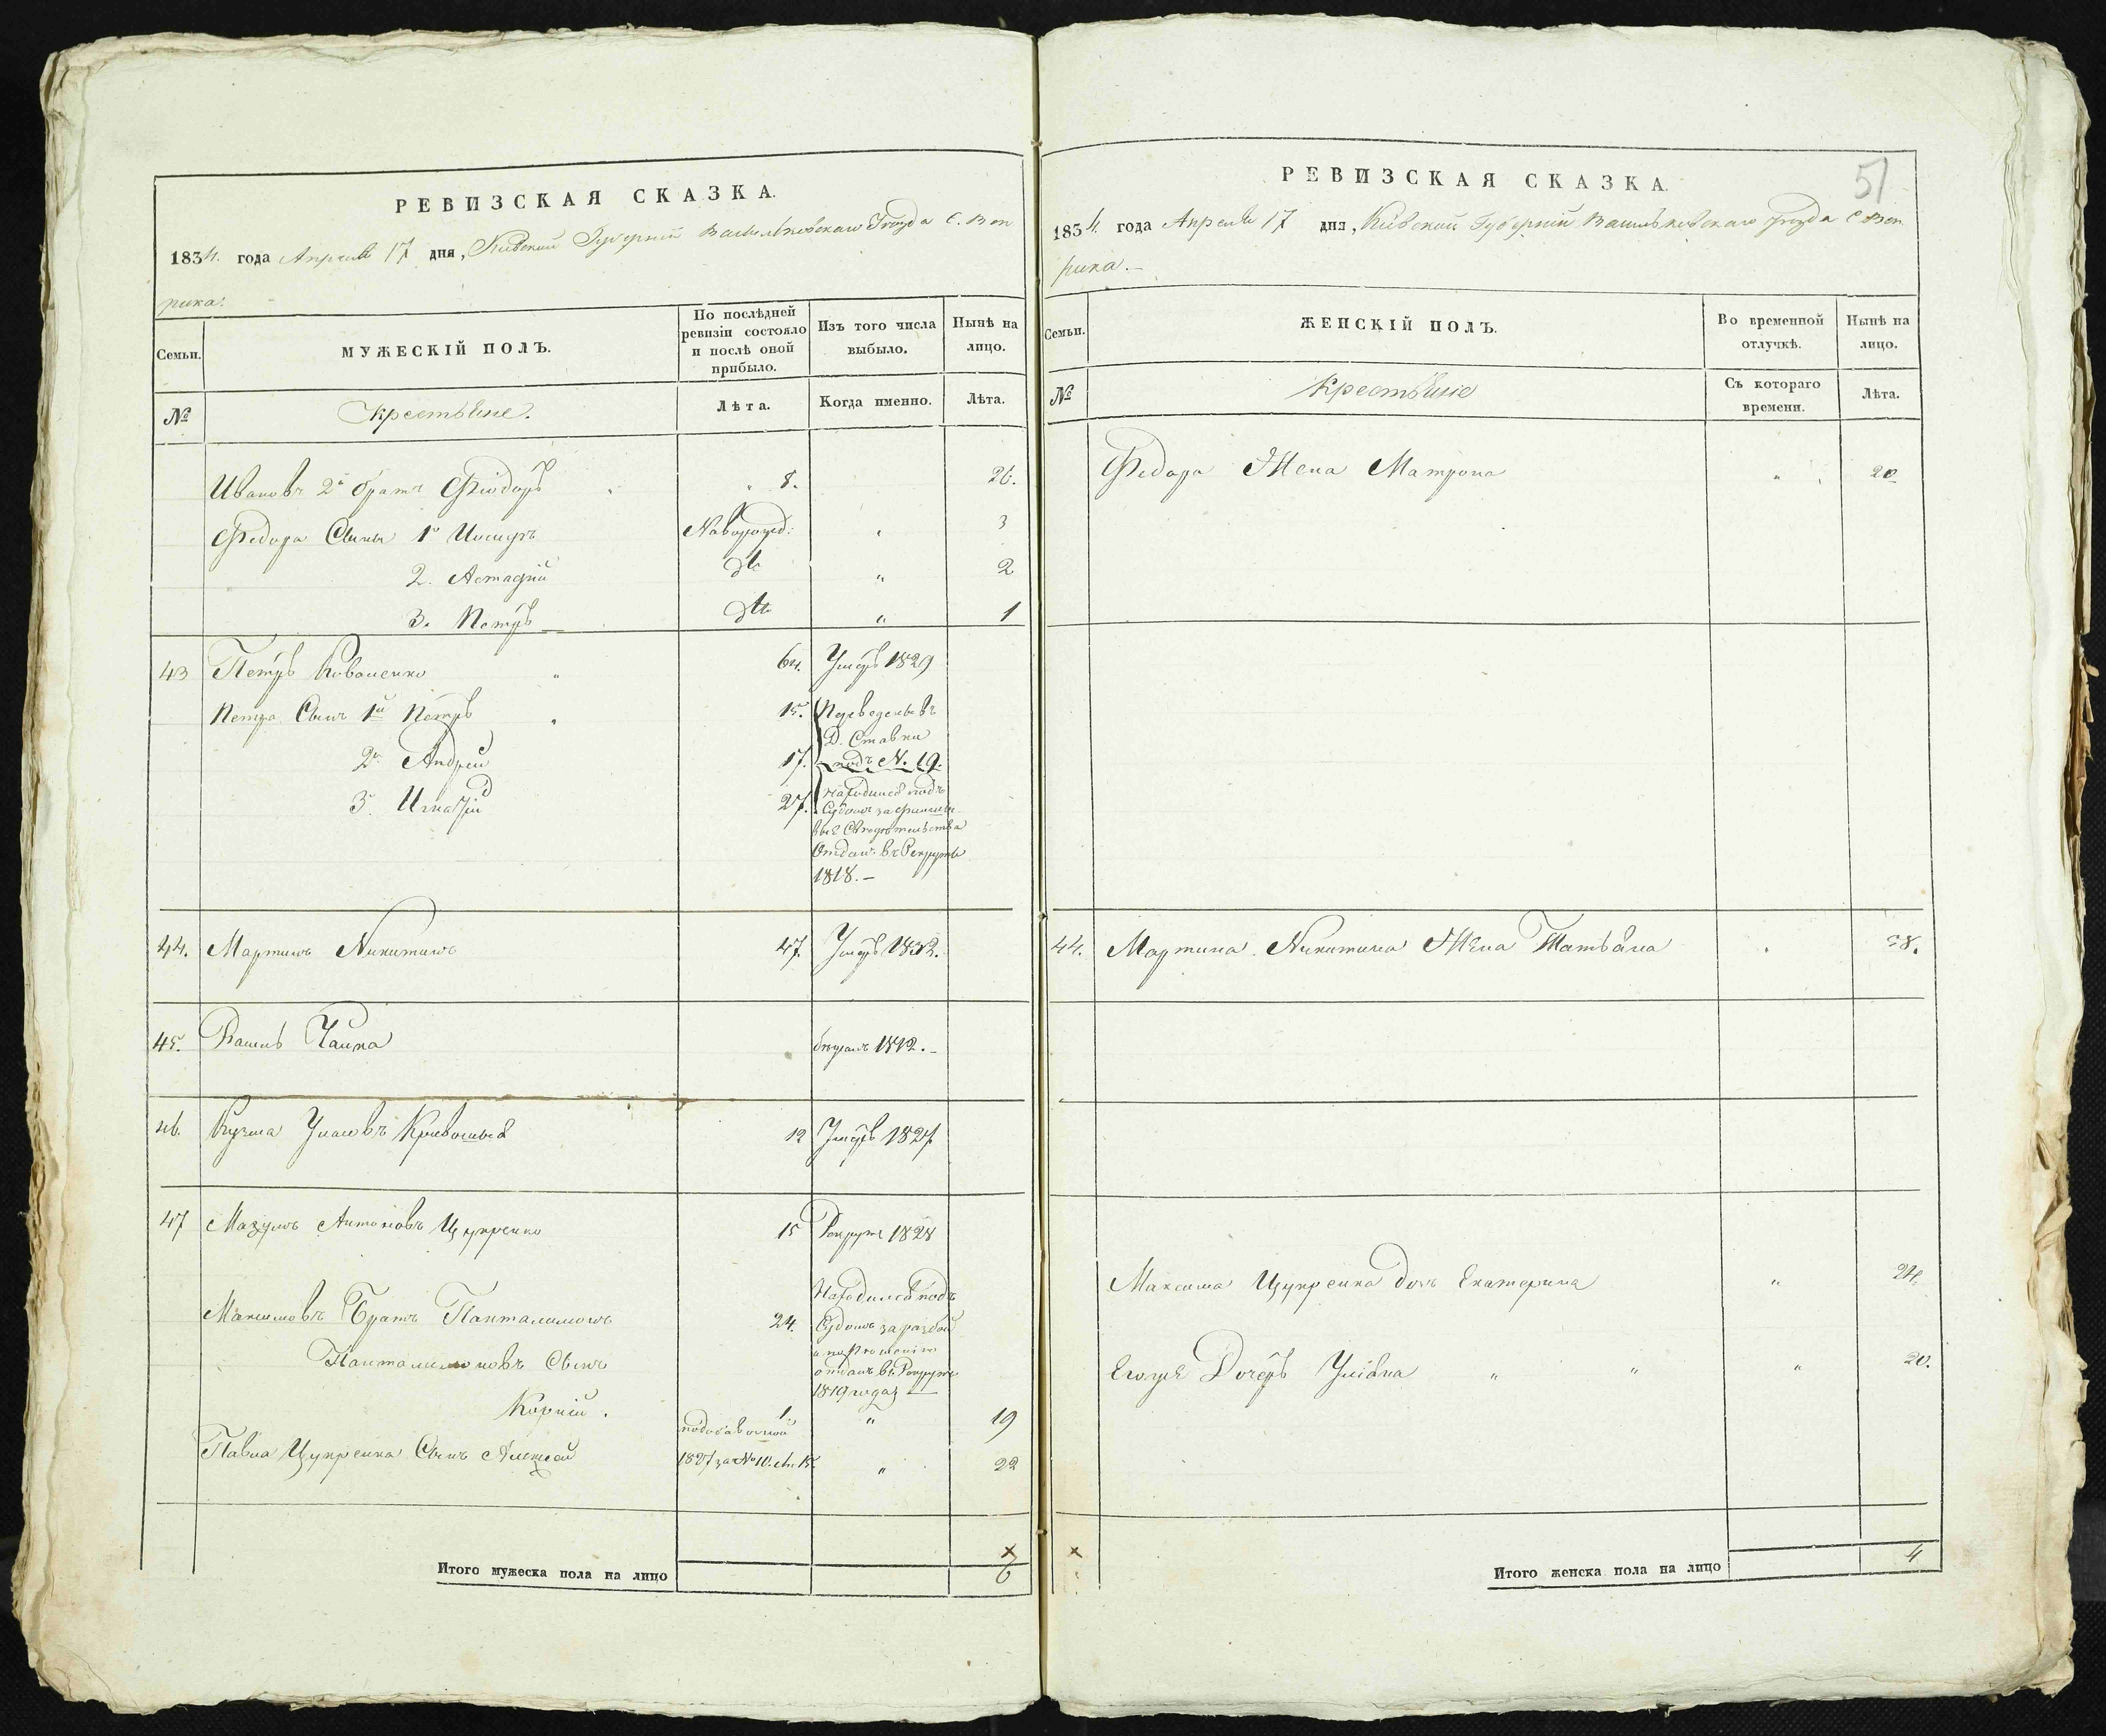 РЕВИЗСКАЯ СКАЗКА.
1834. года Апреля 17 дня, Киевской Губерний Васильковскаго Уезда С. Вет
рика.
Семьи. МУЖЕСКІЙ ПОЛЪ. По послѣдней ревизіи состояло и послѣ оной прибыло. Изъ того числа выбыло. Нынѣ на лицо.
№ Крестьяне. Лѣта. Когда именно. Лѣта.
Ивановъ 2й братъ Фіодоръ " 8. 26.
Федора Сыны 1й Иосифъ Новорожд: " 3
2. Астафій dto " 2
3. Петръ dto " 1
43 Петръ Коваленко " 64. Умеръ 1829
Петра Сынъ 1й Петръ " 15. Переведены въ
Д. Ставки
2й Андрей 17. подъ N. 19.
3й Игнатій 27. находился подъ
Судомъ за
Отдан: въ Рекруты
1818. —
44. Мартинъ Никитинъ 47. Умеръ 1832.
45. Василь Чайка бѣжалъ 1812. —
46. Кузма Кривошыя 12 Умеръ 1827
47 Антоновъ Цукренко 15 Рекрутъ 1828
Находился подъ
Максимовъ Братъ Панталимонъ 24. Судомъ за разбой
Панталимоновъ Сынъ отданъ въ Рекруты
1819 года —
Корній. 1. " 19
Павла Цукренка Сынъ Алексей 1827 за No 10. " 22
Итого мужеска пола на лицо 6
51
РЕВИЗСКАЯ СКАЗКА.
1834. года Апреля 17 дня, Кіевской Губерній Васильковскаго Уезда С Вет
рика. —
Семьи. ЖЕНСКІЙ ПОЛЪ. Во временной отлучкѣ. Нынѣ на лицо.
№ Крестьяне Съ котораго времени. Лѣта.
Федора Жена Матрона " 20
44. Мартина Никитина Жена Татьяна " 38.
Максима Цукренка Екатерина " 24
Егоже Дочерь " " 20.
Итого женска пола на лицо 4